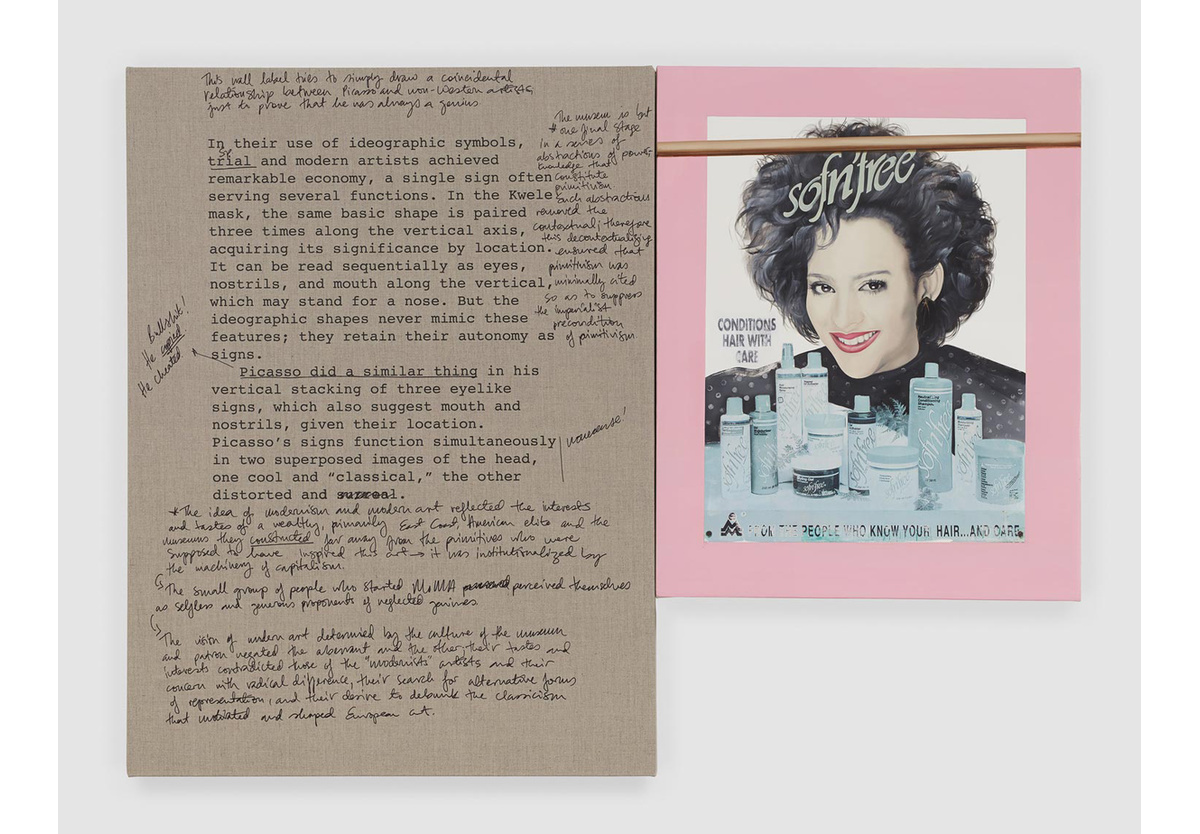 This wall label tries to simply draw a coincidental
relationship between Picasso and non-Western artists
just to prove that he was always a genius
In their use of ideographic symbols,
trial and modern artists achieved
remarkable economy, a single sign often
serving several functions. In the Kwele
mask, the same basic shape is paired
three times along the vertical axis,
acquiring its significance by location.
It can be read sequentially as eyes,
nostrils, and mouth along the vertical,
which may stand for a nose. But the
ideographic shapes never mimic these
features; they retain their autonomy as
signs.
Picasso did a similar thing in his
vertical stacking of three eyelike
signs, which also suggest mouth and
nostrils, given their location.
Picasso's signs function simultaneously
in two superposed images of the head,
one cool and "classical," the other
distorted and surreal.
The museum is but
* one final stage
in a series of
abstractions of power-
knowledge that
constitute
primitivism
such abstractions
removed the
contextual; therefore
this decontextualizing
ensured that
primitivism was
minimally cited
so as to suppress
the imperialist
precondition
of primitivism
Bullshit!
He copied
He cheated
nonsense!
*The idea of modernism and modern art reflected the interests
and tastes of a wealthy, primarily East Coast, American elite and the
museums they constructed far away from the primitives who were
supposed to have inspired this art → it was institutionalized by
the machinery of capitalism.
The small group of people who started MoMA perceived themselves
as selfless and generous proponents of neglected geniuses
The vision of modern art determined by the culture of the museum
and patron negated the aberrant and the other; their tastes and
interests contradicted those of the "modernists" artists and their
concern with radical difference, their search for alternative forms
of representation, and their desire to debunk the classicism
that motivated and shaped European art.
sofn'free
CONDITIONS
HAIR WITH
CARE
sofn'free
FROM THE PEOPLE WHO KNOW YOUR HAIR...AND CARE